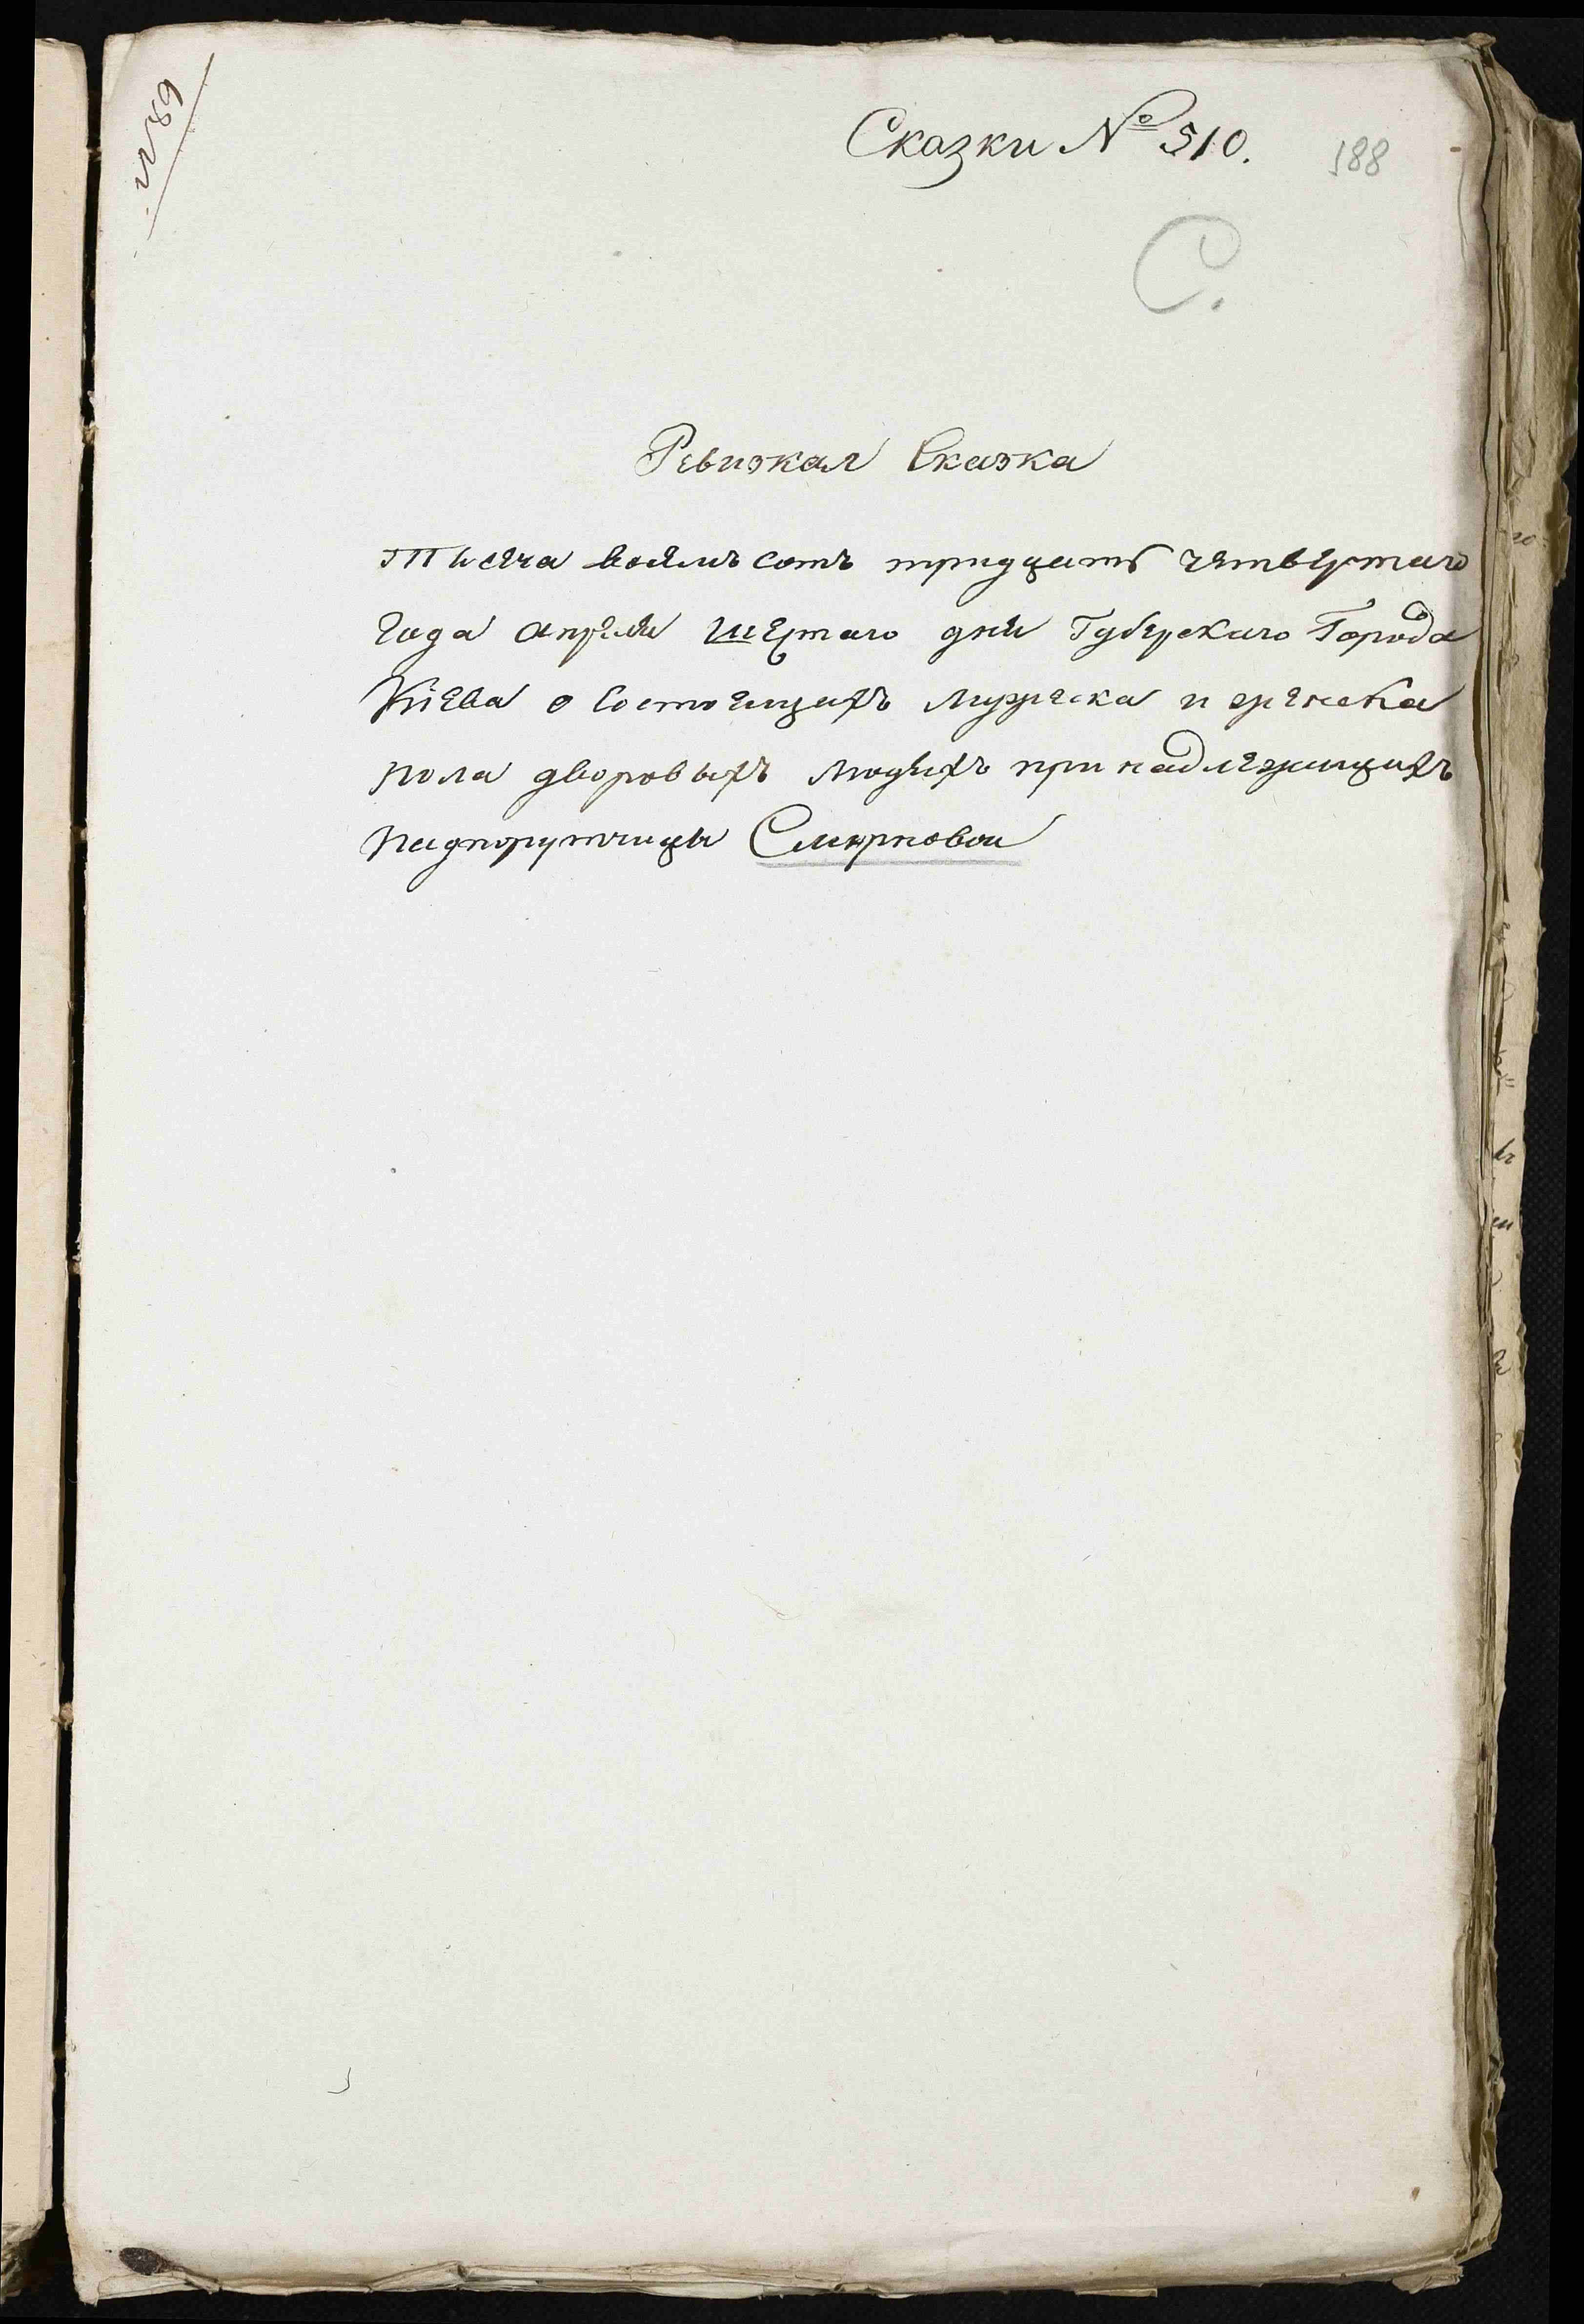 Сказки № 510.
188
С.
Ревизкая Сказка
Тысеча восемь сотъ тридцать четвертаго
года апреля шестаго дня Губерскаго Города
Кіева о состоящихъ мужеска и женска
пола дворовыхъ людяхъ принадлежащихъ
падпорутчицы Смирновои